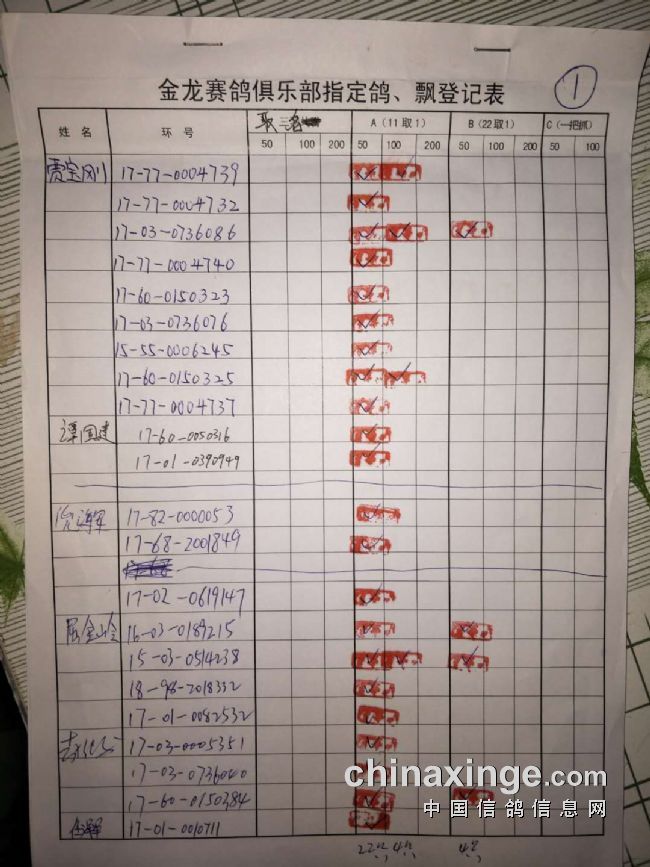 ①
金龙赛鸽俱乐部指定鸽、飘登记表
姓名 环号 取三名 A(11取1) B(22取1) C(一把抓)
50 100 200 50 100 200 50 100 200 50 100
贾宝刚 17-77-0004739
17-77-0004732
17-03-0736086
17-77-0004740
17-60-0150323
17-03-0736076
15-55-0006245
17-60-0150325
17-77-0004737
谭国建 17-60-0050316
17-01-0390949
17-82-0000053
17-68-2001849
17-02-0619147
屈金山 16-03-0189215
15-03-0514238
18-98-2018332
17-01-0082532
17-03-0005351
17-03-0736040
17-60-0150384
17-01-0010711
chinaxinge.com
中国信鸽信息网